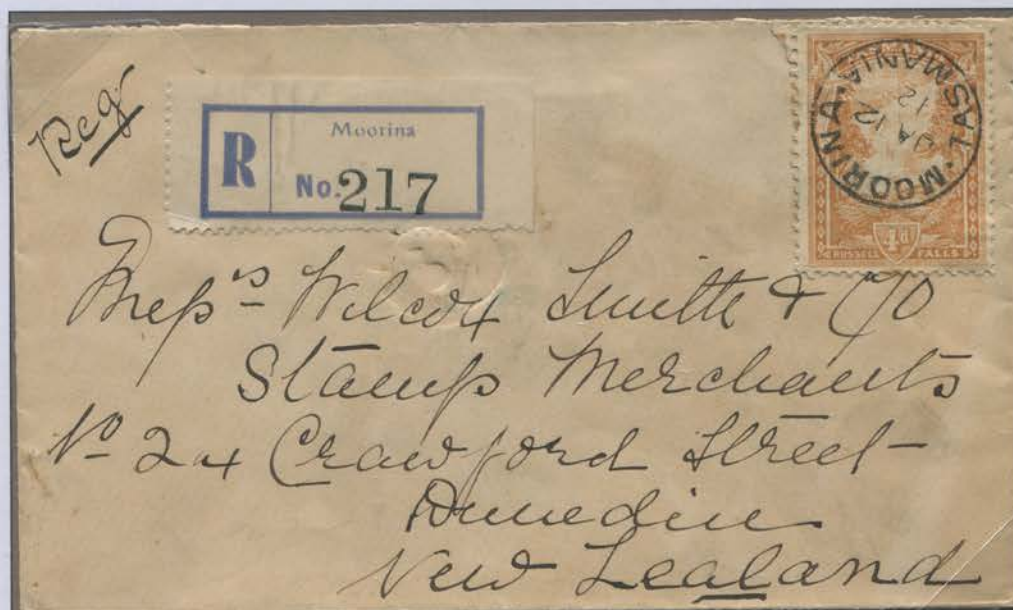 Reg
Moorina
R No. 217
MOORINA. TASMANIA
JA 12
12
4d
RUSSELL FALLS
Messrs Wilcox Smith & Co
Stamp Merchants
No 24 Crawford Street
Dunedin
New Zealand